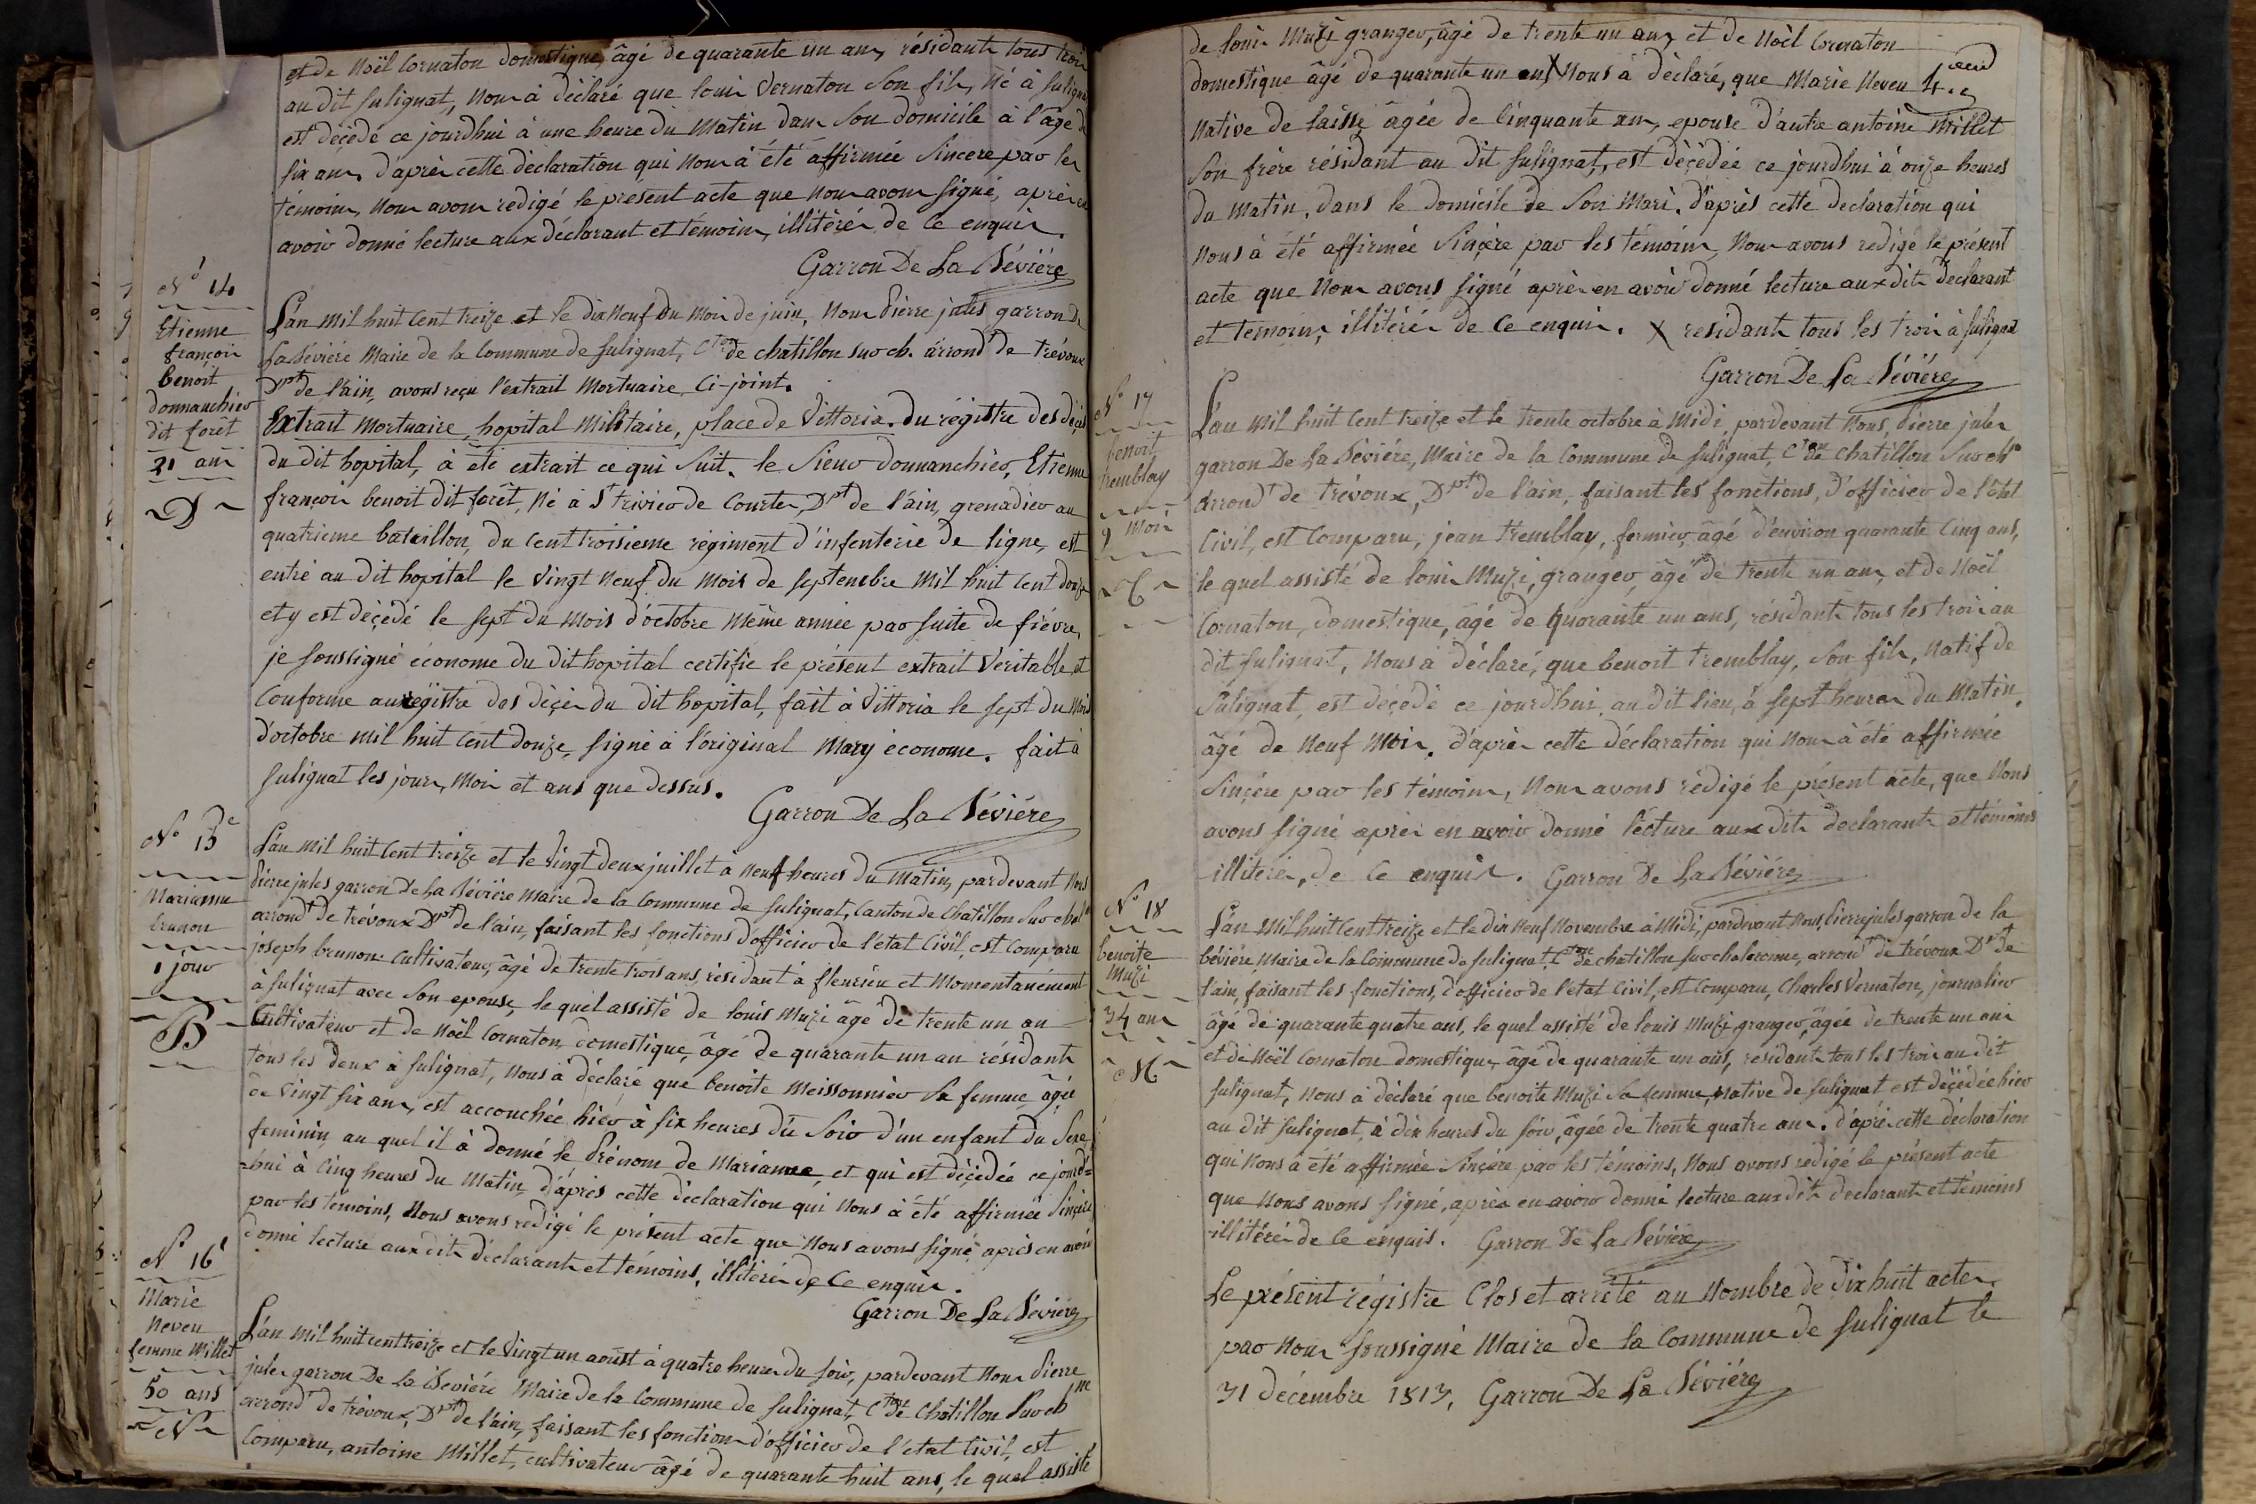 et de Noël Cornaton domestique, âgé de quarante un ans, résidants tous trois
au dit Sulignat, Nous à déclaré que louis Vernaton Son fils, Né à Sulignat
est déçèdé ce jourdhui à une heure du Matin dans Son domicile à l'âge de
six ans, d'après cette déclaration qui Nous à été affirmée Sincere par les
témoins, Nous avons redigé le présent acte que Nous avons signé, après en
avoir donné lecture aux déclarant et témoins, illitérés de ce enquis.
Garron De La Bévière
N° 14
Etienne
françois
benoit
donnanchier
dit forêt
31 ans
D
L'an Mil huit Cent treize et le dix Neuf du Mois de juin, Nous Pierre jules garron De
La Bévière Maire de la Commune de Sulignat, Cton de chatillon sur ch. arrondt de trévoux
Dpt de l'ain, avons reçu l'extrait Mortuaire Ci-joint.
Extrait Mortuaire, hopital Militaire, place de Vittoria. du régistre des déçès
du dit hopital, à été extrait ce qui Suit. le Sieur donnanchier, Etienne
françois benoit dit forêt, Né à St trivier de Courtes, Dpt de l'ain, grenadier au
quatrieme bataillon, du Cent troisieme régiment d'infenterie de ligne, est
entré au dit hopital le Vingt Neuf du Mois de Septembre Mil huit Cent douze
et y est déçèdé le Sept du Mois d'octobre Même année par suite de fièvre,
je soussigné économe du dit hopital certifie le présent extrait Véritable et
Conforme au régistre des déçès du dit hopital, fait à Vittoria le sept du Mois
d'octobre Mil huit Cent douze, signé à l'original Mary économe. fait à
Sulignat les jour, Mois et ans que dessus.
Garron De La Bévière
N° 15
Marianne
brunon
1 jour
B
L'an Mil huit Cent treize et le Vingt deux juillet à Neuf heures du Matin, pardevant Nous
Pierre jules garron De La Bévière Maire de la Commune de Sulignat, Canton de Chatillon Sur chal
arrondt de trévoux Dpt de l'ain, faisant les fonctions d'officier de l'état Civil, est Comparu
joseph brunon Cultivateur, âgé de trente trois ans, résidant à fleurieu et Momentanément
à Sulignat avec Son epouse, le quel assisté de louis Muzi âgé de trente un an
Cultivateur et de Noël Cornaton, domestique, âgé de quarante un an résidants
tous les deux à Sulignat, Nous à déclaré que benoite Meissonnier Sa femme âgée
de Vingt six ans, est accouchée hier à six heures du Soir d'un enfant du Sexe
feminin, au quel il à donné le Prénom de Marianne, et qui est déçèdée ce jourd'
hui à Cinq heures du Matin, d'après cette déclaration qui Nous à été affirmée Sinçère
par les témoins, Nous avons redigé le présent acte que Nous avons signé après en avoir
donné lecture aux dits déclarants et témoins, illitérés de Ce enquis.
Garron De La Bévière
N° 16
Marie
Neveu
femme Millet
50 ans
N
L'an Mil huit cent treize et le Vingt un août à quatre heures du soir, pardevant Nous Pierre
jules garron De La Bévière Maire de la Commune de Sulignat, Cton de Chatillon Sur ch
arrondt de trévoux, Dpt de l'ain, faisant les fonctions d'officier de l'état Civil, est
Comparu, antoine Millet, cultivateur âgé de quarante huit ans, le quel assisté
de louis Muzi granger, âgé de trente un ans, et de Noël Cornaton
domestique âgé de quarante un an, X Nous à déclaré, que Marie Neveu
Native de Laissé âgée de Cinquante ans, epouse d'autre antoine Millet
Son frère résidant au dit Sulignat, est déçèdée ce jourdhui à onze heures
du Matin, dans le domicile de Son Mari. d'après cette déclaration qui
Nous à été affirmée Sinçère par les témoins, Nous avons redigé le présent
acte que Nous avons signé après en avoir donné lecture aux dits déclarant
et temoins, illitérés de Ce enquis. X residants tous les trois à Sulignat
Garron De La Bévière
N° 17
benoit
tremblay
9 Mois
L'an Mil huit Cent treize et le trente octobre à Midi, pardevant Nous, Pierre jules
garron De La Bévière, Maire de la Commune de Sulignat, Cton de Chatillon Sur ch
arrondt de trévoux, Dpt de l'ain, faisant les fonctions, d'officier de l'état
Civil, est Comparu, jean tremblay, fermier, âgé d'environ quarante Cinq ans,
le quel assisté de louis Muzi, granger, âgé de trente un ans, et de Noël
Cornaton, domestique, âgé de quarante un ans, résidants tous les trois au
dit Sulignat, Nous à déclaré, que benoit tremblay, Son fils, Natif de
Sulignat, est déçèdé ce jourdhui, au dit lieu, à sept heures du Matin,
âgé de Neuf Mois. d'après cette déclaration qui Nous à été affirmée
Sinçère par les témoins, Nous avons rédigé le présent acte, que Nous
avons signé après en avoir donné lecture aux dits déclarants et témoins
illiterés, de Ce enquis. Garron De La Bévière
N° 18
benoite
Muzi
34 ans
M
L'an Mil huit Cent treize et le dix Neuf Novembre à Midi, pardevant Nous, Pierre jules garron de la
bévière, Maire de la Commune de Sulignat, Cton de chatillon sur chalaronne, arrondt de trévoux Dpt de
l'ain, faisant les fonctions, d'officier de l'état Civil, est Comparu, Charles Vernaton, journalier
âgé de quarante quatre ans, le quel assisté de louis Muzi, granger, âgée de trente un ans
et de Noël Cornaton domestique, âgé de quarante un ans, residants tous les trois au dit
Sulignat, Nous à déclaré que benoite Muzi Sa femme, Native de Sulignat est déçèdée hier
au dit Sulignat, à dix heures du Soir, âgée de trente quatre ans. d'après cette déclaration
qui Nous à été affirmée Sinçère par les témoins, Nous avons redigé le présent acte
que Nous avons signé, après en avoir donné lecture aux dits déclarants et témoins
illitérés de Ce enquis. Garron De La Bévière
Le présent régistre Clos et arrêté au Nombre de Dix huit actes,
par Nous Soussigné Maire de la Commune de Sulignat le
31 décembre 1813, Garron De La Bévière